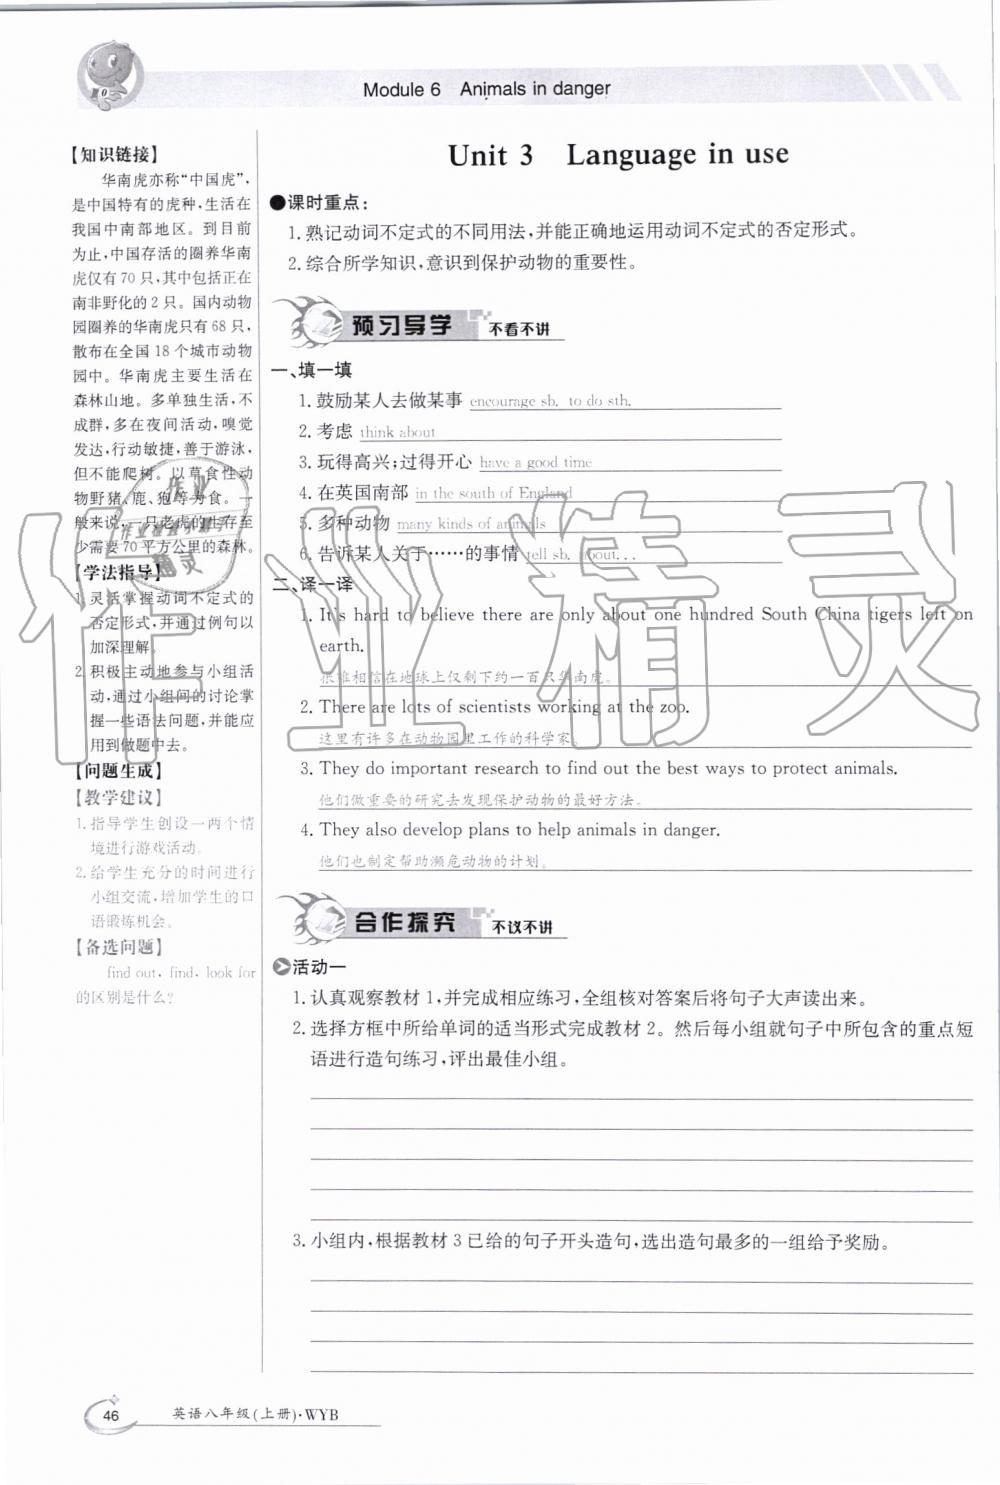 Module 6 Animals in danger
【知识链接】
华南虎亦称“中国虎”,
是中国特有的虎种,生活在
我国中南部地区。到目前
为止,中国存活的圈养华南
虎仅有70只,其中包括正在
南非野化的2只。国内动物
园圈养的华南虎只有68只,
散布在全国18个城市动物
园中。华南虎主要生活在
森林山地。多单独生活,不
成群,多在夜间活动,嗅觉
发达,行动敏捷,善于游泳,
但不能爬树。以草食性动
物野猪、鹿、狍等为食。一
般来说,一只老虎的生存至
少需要70平方公里的森林。
【学法指导】
1.灵活掌握动词不定式的
否定形式,并通过例句以
加深理解。
2.积极主动地参与小组活
动,通过小组间的讨论掌
握一些语法问题,并能应
用到做题中去。
【问题生成】
【教学建议】
1.指导学生创设一两个情
境进行游戏活动。
2.给学生充分的时间进行
小组交流,增加学生的口
语锻炼机会。
【备选问题】
find out, find, look for
的区别是什么?
Unit 3 Language in use
●课时重点:
1.熟记动词不定式的不同用法,并能正确地运用动词不定式的否定形式。
2.综合所学知识,意识到保护动物的重要性。
预习导学 不看不讲
一、填一填
1.鼓励某人去做某事 encourage sb. to do sth.
2.考虑 think about
3.玩得高兴;过得开心 have a good time
4.在英国南部 in the south of England
5.多种动物 many kinds of animals
6.告诉某人关于……的事情 tell sb. about...
二、译一译
1. It's hard to believe there are only about one hundred South China tigers left on
earth.
很难相信在地球上仅剩下约一百只华南虎。
2. There are lots of scientists working at the zoo.
这里有许多在动物园里工作的科学家。
3. They do important research to find out the best ways to protect animals.
他们做重要的研究去发现保护动物的最好方法。
4. They also develop plans to help animals in danger.
他们也制定帮助濒危动物的计划。
合作探究 不议不讲
活动一
1.认真观察教材1,并完成相应练习,全组核对答案后将句子大声读出来。
2.选择方框中所给单词的适当形式完成教材2。然后每小组就句子中所包含的重点短
语进行造句练习,评出最佳小组。
3.小组内,根据教材3已给的句子开头造句,选出造句最多的一组给予奖励。
46 英语八年级(上册)·WYB
作业精灵